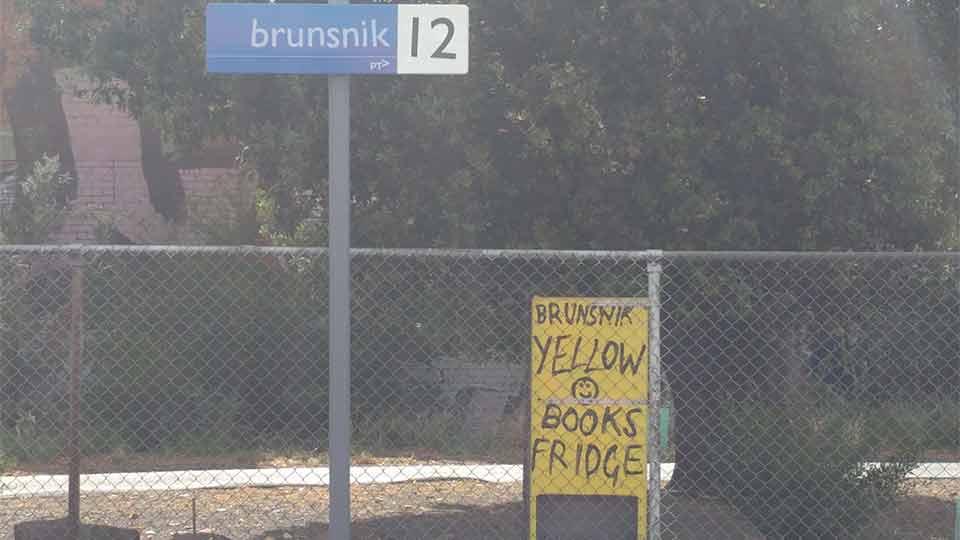 brunsnik 12
PT>
BRUNSNIK
YELLOW
BOOKS
FRIDGE